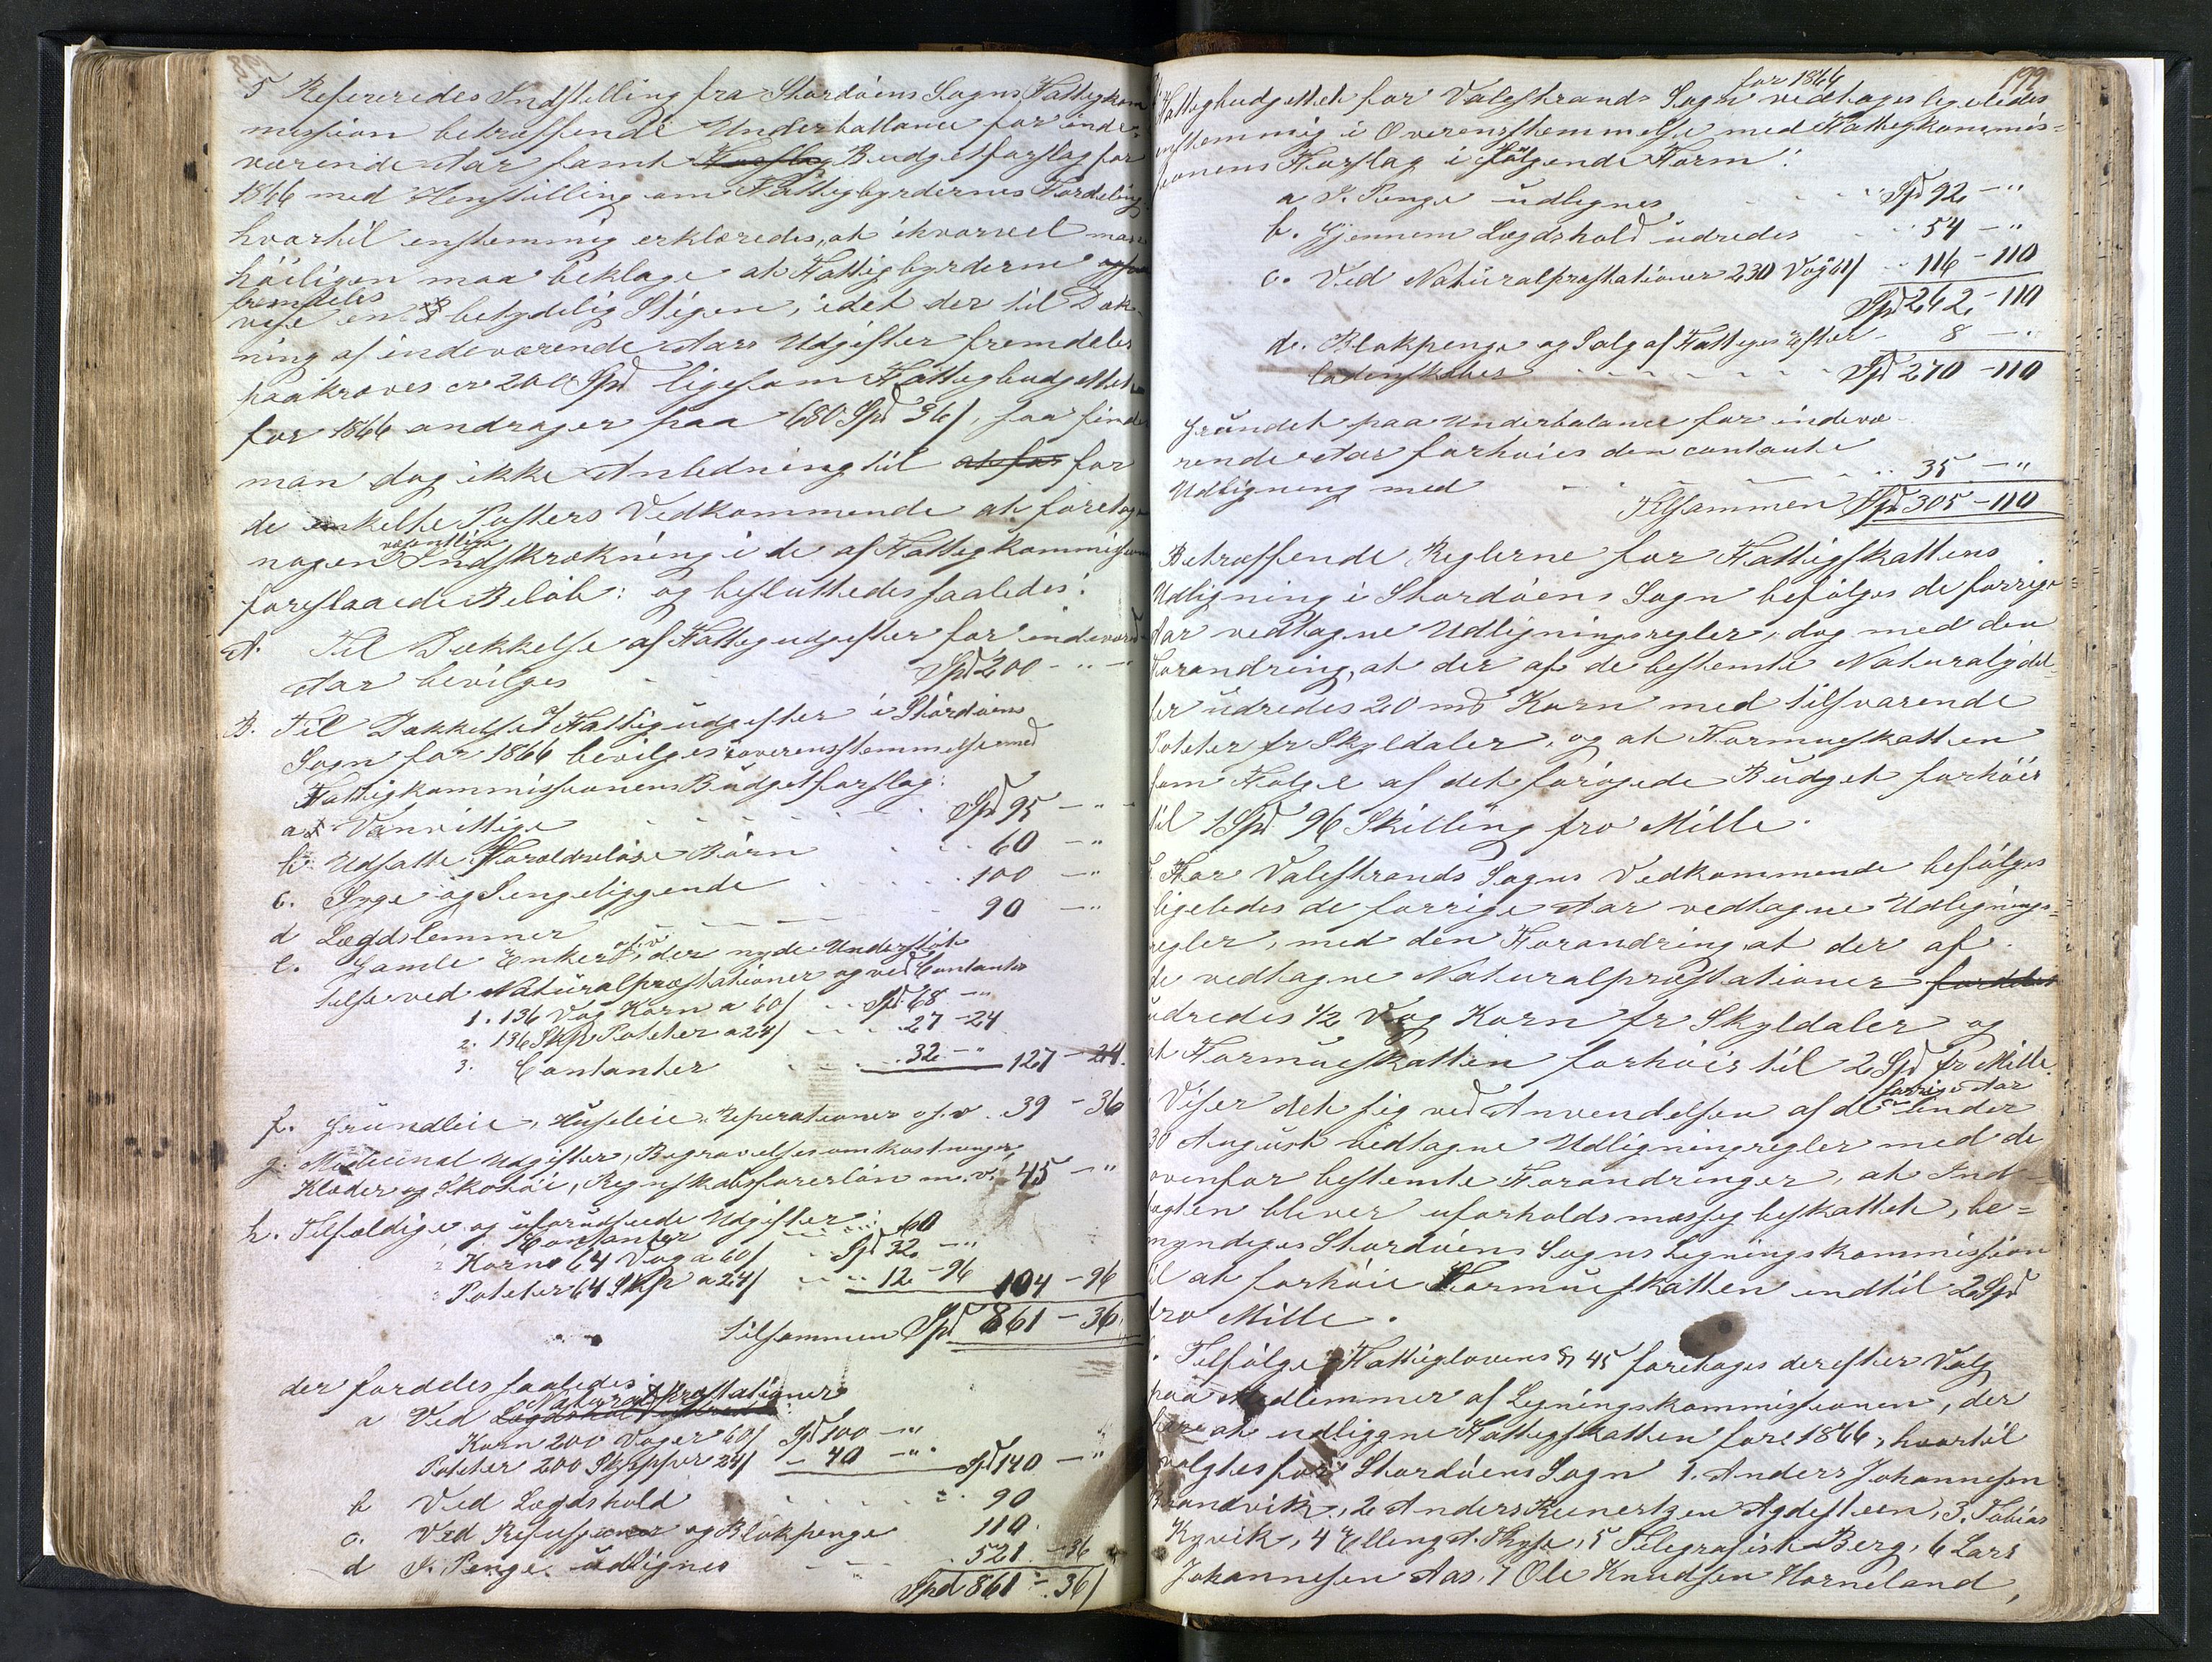 5 Refereredes Indstilling fra Stordøens Sogns Fattigkom
mission betræffende Underballance for inde-
værende Aar samt Forslag Budgetforslag for
1866 med Henstilling om Fattigbyrdernes Fordeling
hvortil enstemmig erklæredes, at ihvorvel man
høiligen maa beklage at Fattigbyrderne
fremdeles
vise en betydelig Stigen, idet der til Dæk-
ning af indeværende Aars Udgifter fremdeles
paakræves cr 200 Spd ligesom Fattigbudgettet
for 1866 andrager paa 680 Spd 36/, saa finder
man dog ikke Anledning til at for for
de enkelte Posters Vedkommende at foretage
væsentlige
nogen Indskrækning i de af Fattigkommissionen
foreslaaede Beløb: og besluttedes saaledes:
A. Til Dækkelse af Fattigudgifter for indeværende
Aar bevilges Spd 200 - " -
B. Til Dækkelse af Fattigudgifter i Stordøens
Sogn for 1866 bevilges i overensstemmelse med
Fattigkommissionens Budgetforslag:
a Vanvittige Spd 95 - "
b. Udsatte Forældreløse Børn 60 - "
c. Syge og Sengeliggende 100 - "
d Lægdslemmer 90 - "
e. Gamle Enker o.s.v. der nyde Understøt
telse ved Naturalpræstationer og ved Contanter
1. 136 Vog Korn a 60/ Spd 68 - "
2. 136 Skp Poteter a 24/ 27 - 24
3. Contanter 32 - " 127 - 24.
f. Grundleie, Husleie, Reperationer o.s.v. 39 - 36
g. Medicinal Udgifter, Begravelsesomkostninger,
Klæder og Skotøi, Regnskabsførerløn m.v. 45 - "
h. Tilfældige og uforudseede Udgifter:
Contanter 60
Korn 64 Vog a 60/ Spd 32 - "
Poteter 64 Skp a 24/ 12 - 96 104 - 96
tilsammen Spd 861 - 36
der fordeles saaledes:
a Ved Naturalpræstationer
Korn 200 Voger 60/ Spd 100 - "
Poteter 200 Skjepper 24/ - 40 - " Spd 140 - "
b Ved Lægdshold 90
c. Ved Refusioner og Blokpenge 110.
d I Penge udlignes 521 - 36
Spd 861 - 36/
199
for 1866
Fattigbudgettet for Valestrands Sogn vedtoges ligeledes
enstemmig i Overensstemmelse med Fattigkommis=
sionens Forslag i følgende Form:
a I Penge udlignes Spd 92 - "
b. Gjennem Lægdshold udredes 54 - "
c. Ved Naturalpræstationer 230 Vog 61/ 116 - 110
Spd 262 - 110
d. Blokpenge og Salg af Fattiges Efter- 8 - "
ladenskaber Spd 270 - 110
Grundet paa Underbalance for indevæ
rende Aar forhøies den contante
Udligning med 35 - "
Tilsammen Spd 305 - 110
Betræffende Reglerne for Fattigskattens
Udligning i Stordøens Sogn befølges de forrige
Aar vedtagne Udligningsregler, dog med den
Forandring, at der af de bestemte Naturalydel=
ser udredes 20 md Korn med tilsvarende
Poteter pr Skyldaler, og at Formueskatten
som Følge af det forøgede Budget forhøies
til 1 Spd 96 Skilling pro Mille.
For Valestrands Sogns Vedkommende befølges
ligeledes de forrige Aar vedtagne Udlignings=
regler, med den Forandring at der af
de vedtagne Naturalpræstationer fordeles
udredes 1/2 Vog Korn pr Skyldaler og
at Formueskatten forhøies til 2 Spd pr Mille.
forrige Aar
Viser det sig ved Anvendelsen af de under
30 August vedtagne Udligningregler med de
ovenfor bestemte Forandringer, at Ind-
tægten bliver uforholdsmæssig beskattet, be=
myndiges Stordøens Sogns Ligningskommission
til at forhøie Formueskatten indtil 2 Spd
pro Mille.
Tilfølge Fattiglovens § 45 foretoges derefter Valg
paa Medlemmer af Ligningskommissionen, der
har at udliggne Fattigskatten for 1866, hvortil
valgtes for Stordøens Sogn 1. Anders Johannesen
Grandvik, 2 Anders Reinertzen Agdesteen, 3. Tobias
Kyvik, 4 Elling A. Thyse, 5 Telegrafist Berg, 6 Lars
Johannesen Aas, 7 Ole Knudsen Horneland,